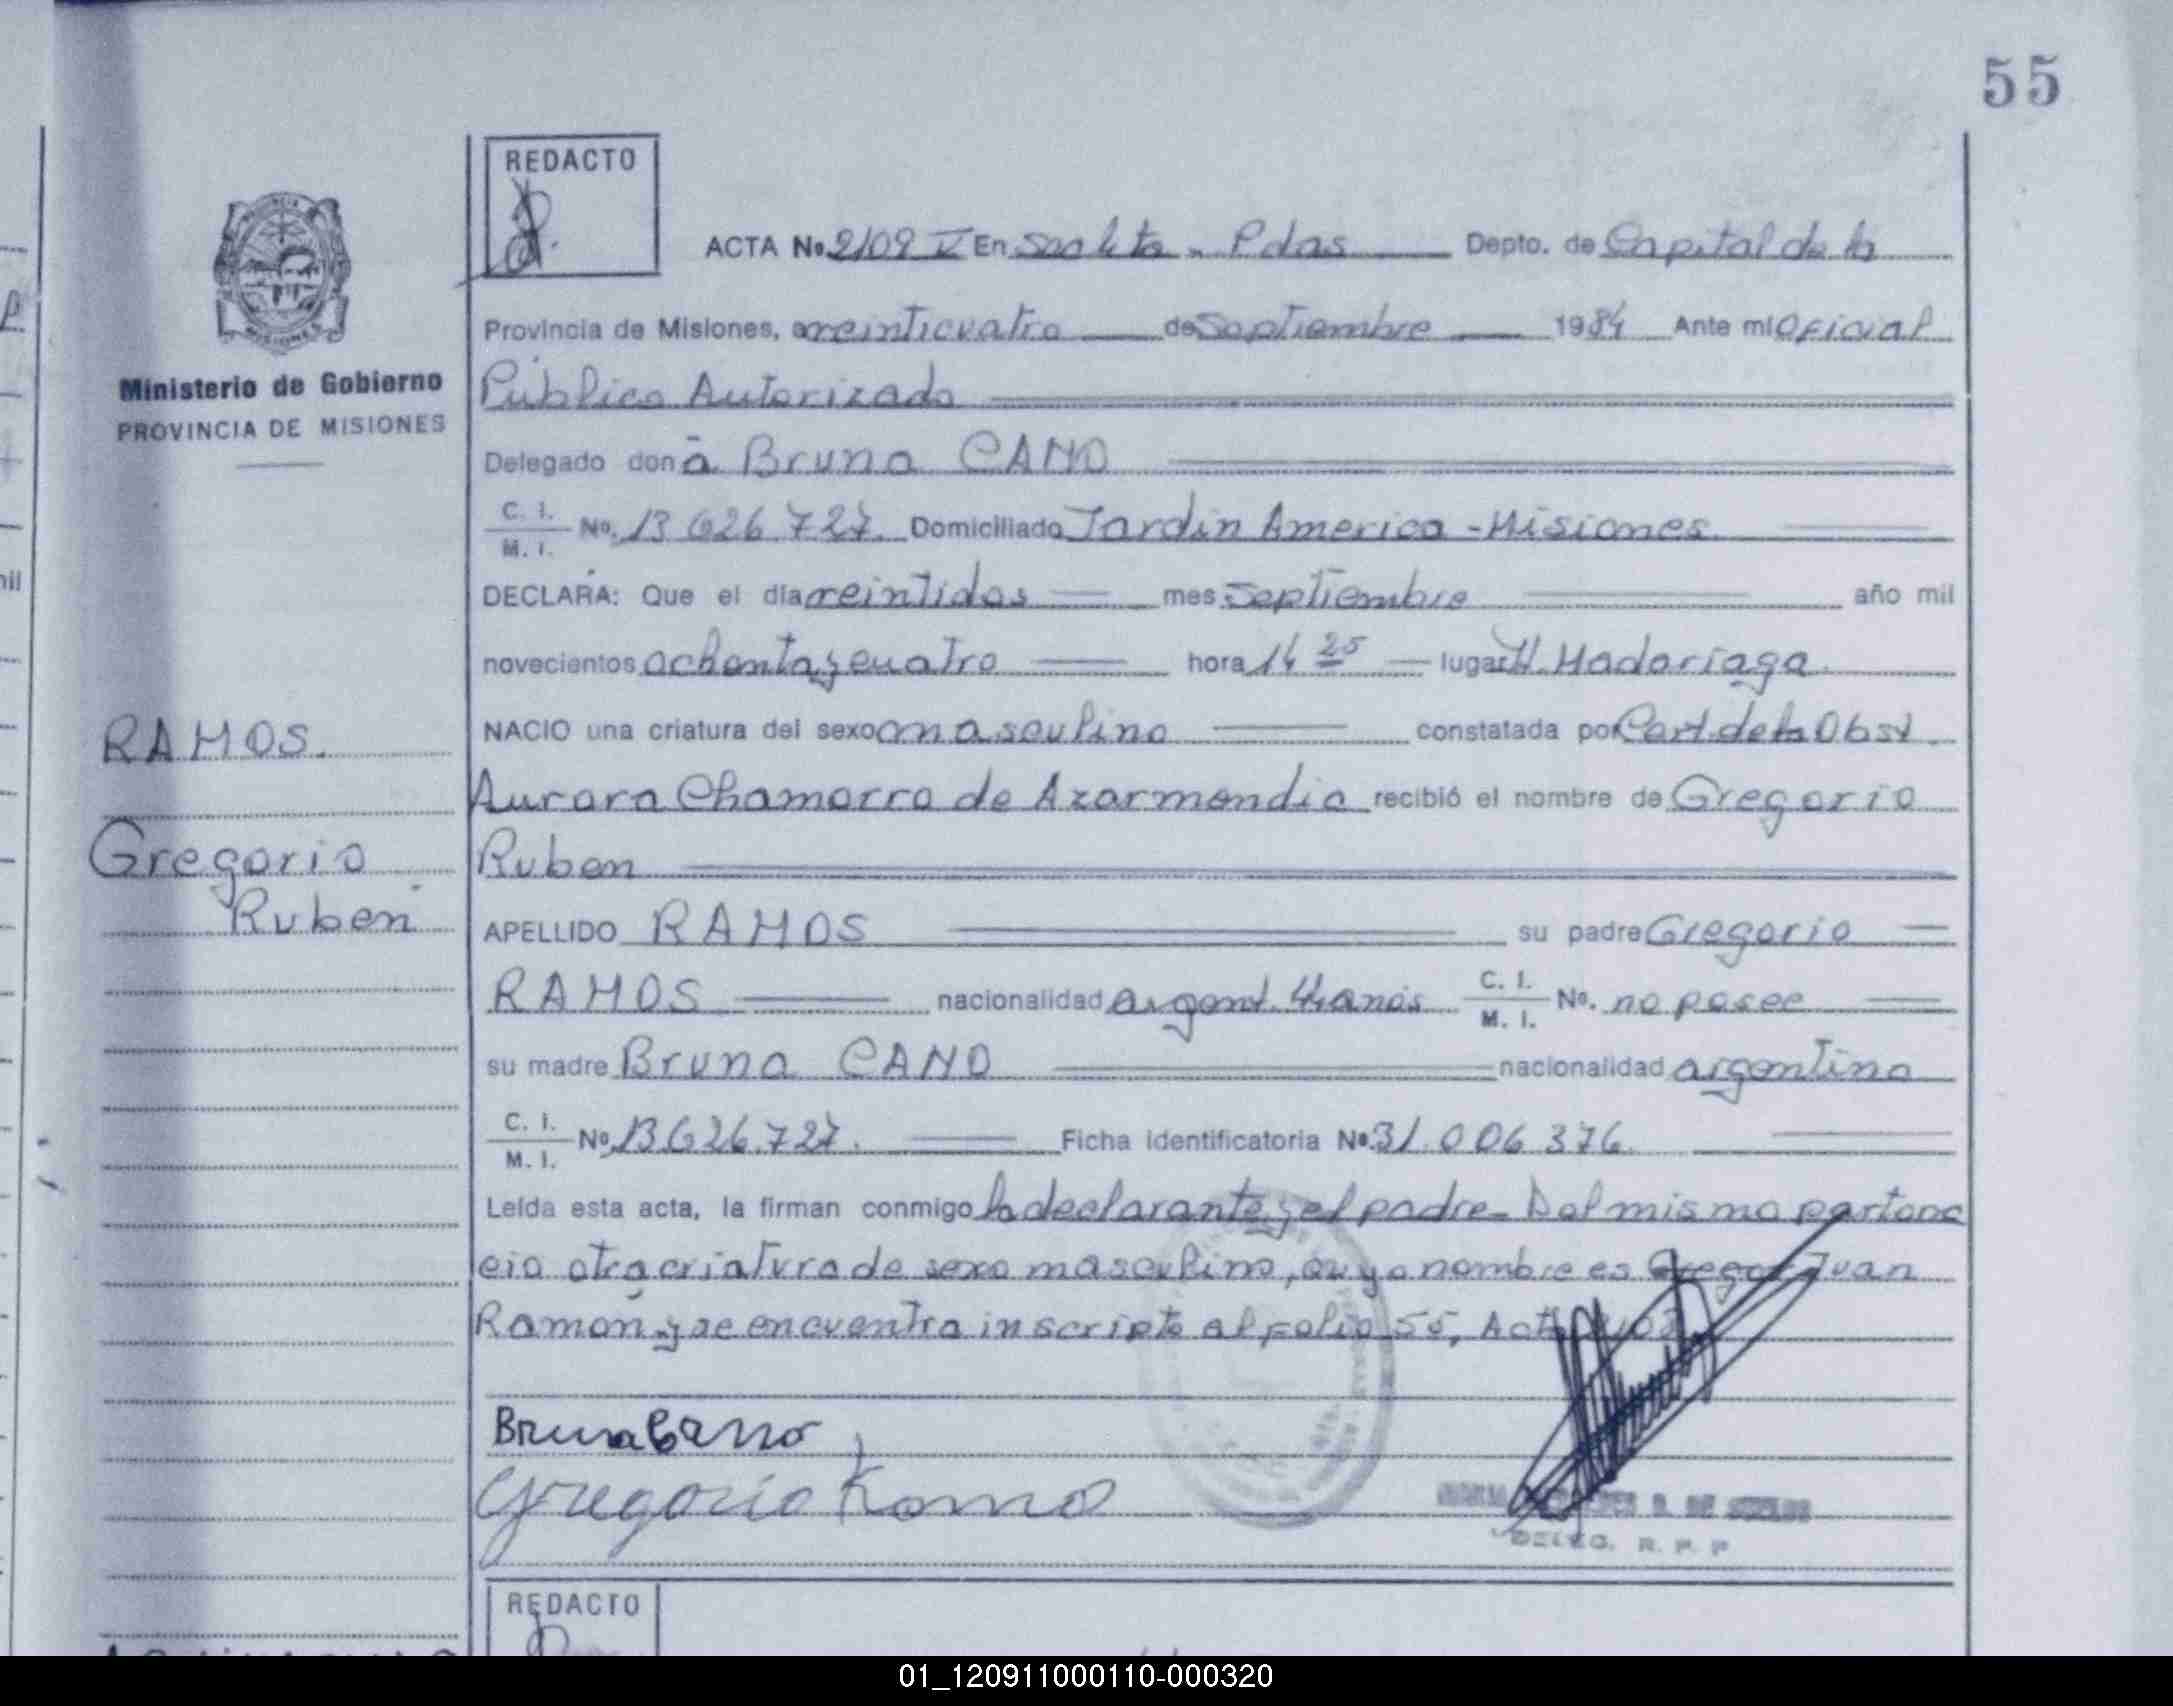 55
REDACTO
ACTA No. 2102 V En Seclita - Pdas Depto. de Capital de la
Provincia de Misiones, a veinticuatro de Septiembre 1984 Ante mi Oficial
Ministerio de Gobierno
PROVINCIA DE MISIONES
Público Autorizado
Delegado doña Bruna CANO
C. I. / M. I. No. 13.626.727. Domiciliado Jardin America - Misiones
DECLARA: Que el día veintidos mes Septiembre año mil
novecientos ochenta y cuatro hora 14 25 lugar H. Madariaga.
NACIO una criatura del sexo masculino constatada por Cert. de la Obst.
RAMOS.
Aurora Chamorro de Azarmendia recibió el nombre de Gregorio
Gregorio
Ruben
Ruben
APELLIDO RAMOS su padre Gregorio
RAMOS nacionalidad argent. 44 anos C. I. / M. I. No. no posee
su madre Bruna CANO nacionalidad argentina
C. I. / M. I. No. 13.626.727. Ficha identificatoria No. 31.006.376.
Leída esta acta, la firman conmigo la declarante y el padre - Del mismo parto na
cio otra criatura de sexo masculino, cuyo nombre es Juan
Ramón y se encuentra inscripto al folio 55, Acta
Bruna Cano
Gregorio Ramos
DELEG. R. P. P
REDACTO
01_120911000110-000320